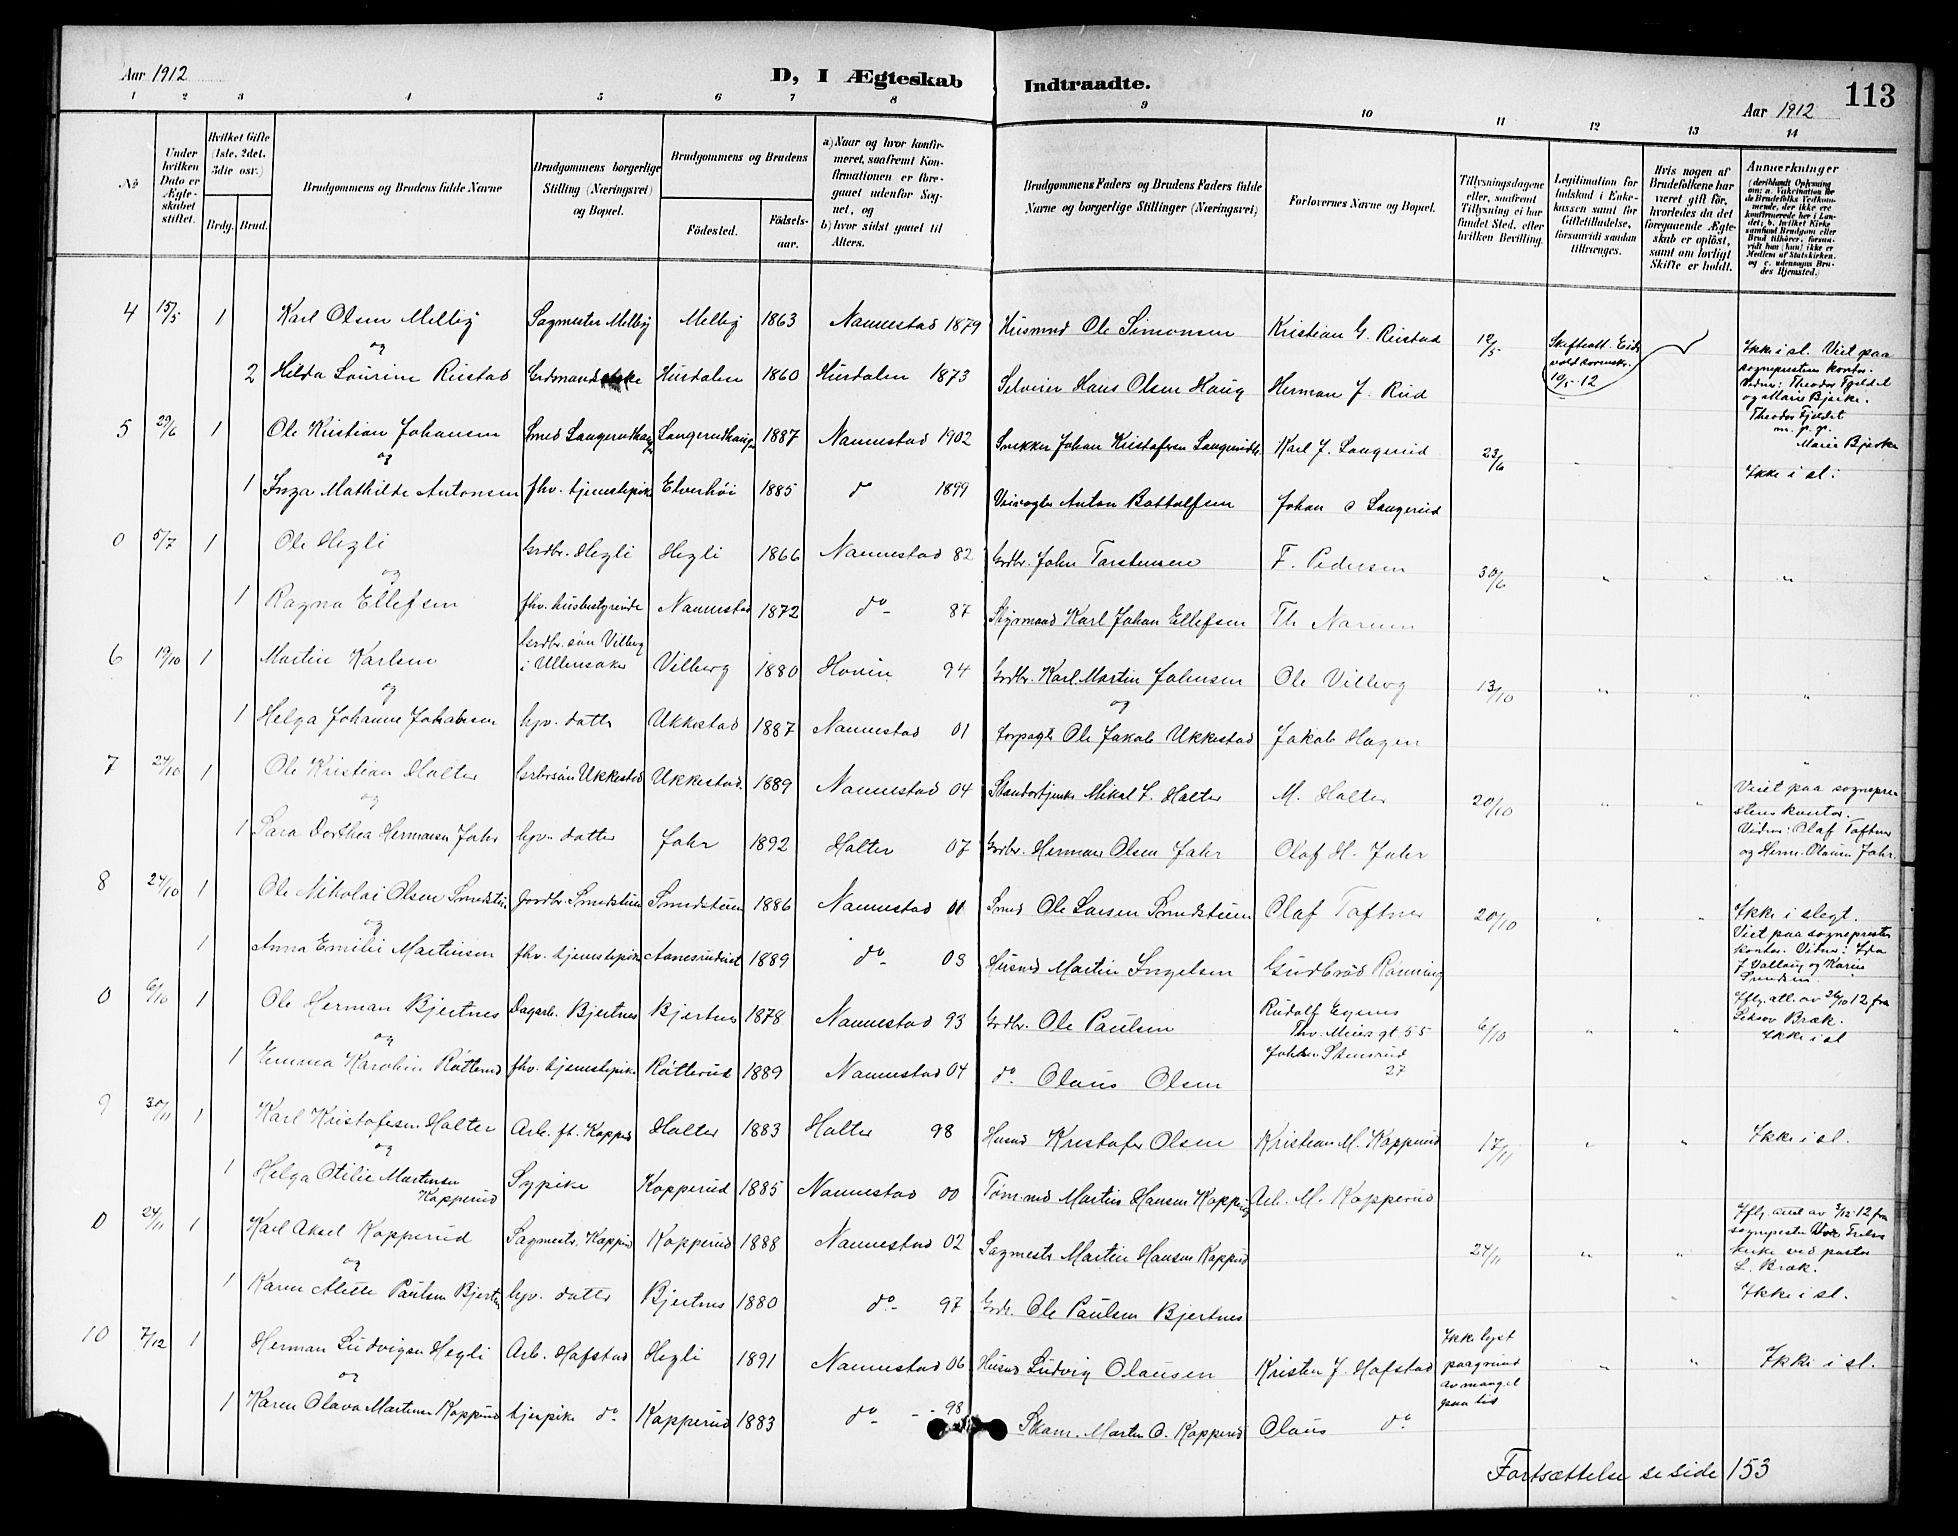 Aar 1912
D, I Ægteskab Indtraadte.
113
Aar 1912
1 2 3 4 5 6 7 8 9 10 11 12 13 14
No
Under hvilken Dato er Ægteskabet stiftet.
Hvilket Gifte (1ste, 2det, 3die osv.)
Brdg. Brud.
Brudgommens og Brudens fulde Navne
Brudgommens borgerlige Stilling (Næringsvei) og Bopæl.
Brudgommens og Brudens
Fødested.
Fødselsaar.
a) Naar og hvor konfirmeret, saafremt Konfirmationen er foregaaet udenfor Sognet, og
b) hvor sidst gaaet til Alters.
Brudgommens Faders og Brudens Faders fulde Navne og borgerlige Stillinger (Næringsvei)
Forlovernes Navne og Bopæl.
Tillysningsdagene eller, saafremt Tillysning ei har fundet Sted, efter hvilken Bevilling.
Legitimation for Indskud i Enkekassen samt for Giftetilladelse, forsaavidt saadan tiltrænges.
Hvis nogen af Brudefolkene har været gift før, hvorledes da det foregaaende Ægteskab er opløst, samt om lovligt Skifte er holdt.
Anmærkninger
4 15/5 1 Karl Olsen Melby Sagmester Melby Melby 1863 Nannestad 1879 Husmnd Ole Simonsen Kristian G. Ristad 12/5
og
2 Hilda Laurine Ristad Hurdalen 1860 Hurdalen 1873 Selveier Hans Olsen Haug Herman J. Rud
10/5-12
Ikke i sl. Viet paa
sognepresten kontor.
Vidner: Theodor Fjeldet
og Marie Bjerke.
Theodor Fjeldet
m. p. p.
Marie Bjerke
5 29/6 1 Ole Kristian Johansen Smed Langerudhaug 1887 Nannestad 1902 Snekker Johan Kristofersen Karl J. Langerud 23/6
og
1 Inga Mathilde Antonsen fhv. tjenestepike Elverhøi 1885 do 1899 Veivogter Anton Bottolfsen Johan O Langerud Ikke i sl.
0 5/7 1 Ole Hegli Grdbr. Hegli Hegli 1866 Nannestad 82 Grdbr. John Torstensen F. Pedersen 30/6 " " "
og
1 Ragna Ellefsen fhv. husbestyrinde Nannestad 1872 do - 87 Styrmand Karl Johan Ellefsen Th Narum
6 19/10 1 Martin Karlsen Grdbr. søn Vilberg i Ullensaker Vilberg 1880 Hovin 94 Grdbr. Karl Martin Johnsen Ole Vilberg 13/10 " " "
og og
1 Helga Johanne Jakobsen hjv. datter Ukkestad 1887 Nannestad 01 forpagter Ole Jakob Ukkestad Jakob Hagen
7 24/10 1 Ole Kristian Holter Grdbrsøn Ukkestad Ukkestad 1889 Nannestad 04 Mikal L. Holter M. Holter 20/10 " "
og
1 Sara Dorthea Hermansen Jahr hjv. datter Jahr 1892 Holter 07 Grdbr. Herman Olsen Jahr Olaf H. Jahr
Viet paa sogneprestens kontor.
Vidner: Olaf Toftner
og Herm. Olsen Jahr.
8 24/10 1 Ole Nikolai Olsen Smedstuen Jordbr. Smedstuen Smedstuen 1886 Nannestad 01 Smed Ole Larsen Smedstuen Olaf Toftner 20/10 " "
og
1 Anna Emilie Martinsen fhv. tjenestepike 1889 do - 03 Husmd Martin Ingelsen Gudbrand Rønning
Ikke i slegt.
Viet paa sogneprestens
kontor. Vidner: Ida
0 6/10 1 Ole Herman Bjertnes Dagarb. Bjertnes Bjertnes 1878 Nannestad 93 Grdbr. Ole Paulsen Rudolf
Thv. Meiers gt. 55 6/10 " "
og
1 Emma Karoline Røtterud fhv. tjenestepike Røtterud 1889 Nannestad 04 do. Olaus Olsen Johan Stensrud
27
Iflg. att. av 26/10 12 fra
Bræk.
Ikke i sl
9 30/11 1 Karl Kristofersen Holter Arb. Holter 1883 Holter 98 Husmd Kristofer Olsen Kristian M. Kopperud 17/11 " " Ikke i sl.
og
1 Helga Otilie Martinsen Kopperud Sypike Kopperud 1885 Nannestad 00 Tømmd Martin Hansen Kopperud Arb. M. Kopperud
0 24/11 1 Karl Aksel Kopperud Sagmestr. Kopperud Kopperud 1888 Nannestad 02 Sagmestr Martin Hansen Kopperud 24/11 " "
og
1 Karen Alette Paulsen Bjertnes hjv. datter Bjertnes 1880 do - 97 Grdbr. Ole Paulsen Bjertnes
Iflg. attest av 3/12-12 fra
kirke ved pastor
L. Bræk.
Ikke i sl.
10 7/12 1 Herman Ludvigsen Hegli Arb. Hofstad Hegli 1891 Nannestad 06 Husmd Ludvig Olausen Kristen J. Hofstad
Ikke lyst
paa grund
av mangel
paa tid
" " Ikke i sl.
og
1 Karen Olava Martinsen Kopperud tjenpike do. Kopperud 1883 do - 98 Skom. Martin O. Kopperud Olaus do
Fortsættelse se side 153